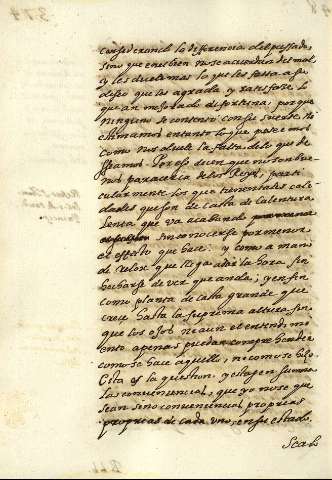 considerando la diferencia del passado,
sino que en el bien no se acuerdan del mal
y les duele mas lo que les falta a su
deseo que les agrada y satisfaze lo
que an mejorado de fortuna, porque
ninguno se contenta con su suerte. No
estimamos en tanto lo que posehemos
como nos duele la falta de lo que de
sseamos. Por esso dicen que no son bue
nos para cerca de los Reyes, parti
cularmente los que tienen tales cali
dades que son de casta de calentura
lenta que va acabando
sin conocerse por menor
el effeto que hace: y como la mano
de relox que llega a dar la hora sin
hecharse de ver que anda; y en fin
como planta de casta grande que
crece hasta la suprema altura sin
que los ojos ni aun el entendimi
ento apenas puedan comprehender
como se hace aquello, ni como se hizo
Esta es la question, y estas en suma
las conveniencias, que yo no se que
sean sino conveniencias proprias
proprias de cada uno, en su estado.